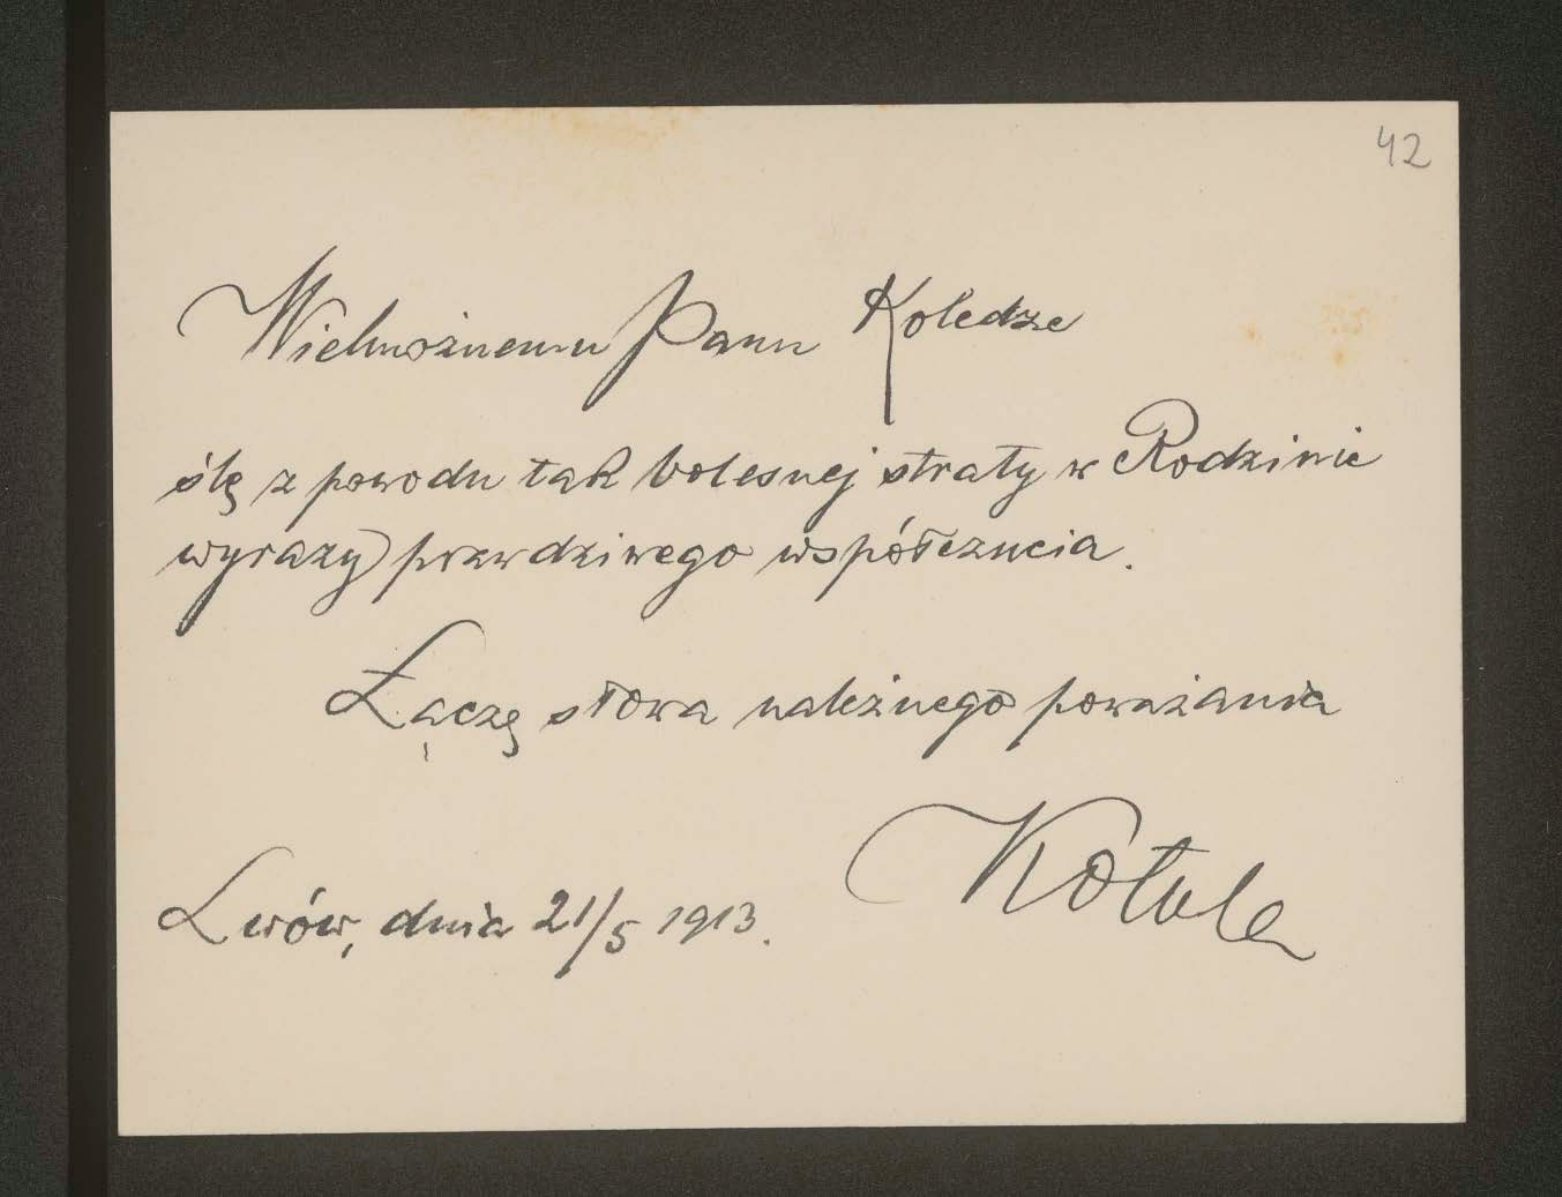 42
Wielmożnemu Panu Koledze
ślę z powodu tak bolesnej straty w Rodzinie
wyrazy prawdziwego współczucia.
Łączę słowa należnego poważania
Kotula
Lwów, dnia 21/5 1913.